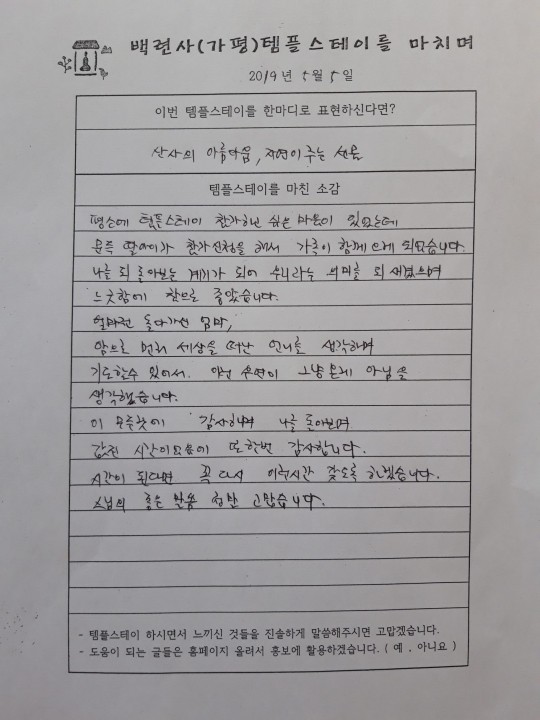 백련사(가평)템플스테이를 마치며
2019년 5월 5일
이번 템플스테이를 한마디로 표현하신다면?
산사의 아름다움, 자연이 주는 선물
템플스테이를 마친 소감
평소에 템플스테이 참가하고 싶은 마음이 있었는데
문득 딸아이가 참가신청을 해서 가족이 함께 오게 되었습니다.
나를 되돌아보는 계기가 되어 의미를 되새겼으며
느긋함에 참으로 좋았습니다.
얼마전 돌아가신 엄마,
암으로 먼저 세상을 떠난 언니를 생각하며
기도할수 있어서. 이번 우연이 그냥 온게 아님을
생각했습니다.
이 모든것에 감사하며 나를 돌아보며
값진 시간이었음에 또한번 감사합니다.
시간이 된다면 꼭 다시 이런시간 갖도록 하겠습니다.
스님의 좋은 말씀 정말 고맙습니다.
- 템플스테이 하시면서 느끼신 것들을 진솔하게 말씀해주시면 고맙겠습니다.
- 도움이 되는 글들은 홈페이지 올려서 홍보에 활용하겠습니다. ( 예 , 아니요 )